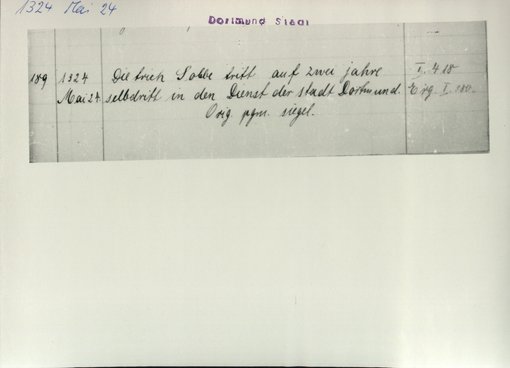 1324 Mai 24
Dortmund Stadt
189 1324 Dietrich Sobbe tritt auf zwei jahre I. 418
Mai 24. selbdritt in den Dienst der stadt Dortmund. Erg. I. 180.
Orig. pgm. siegel.